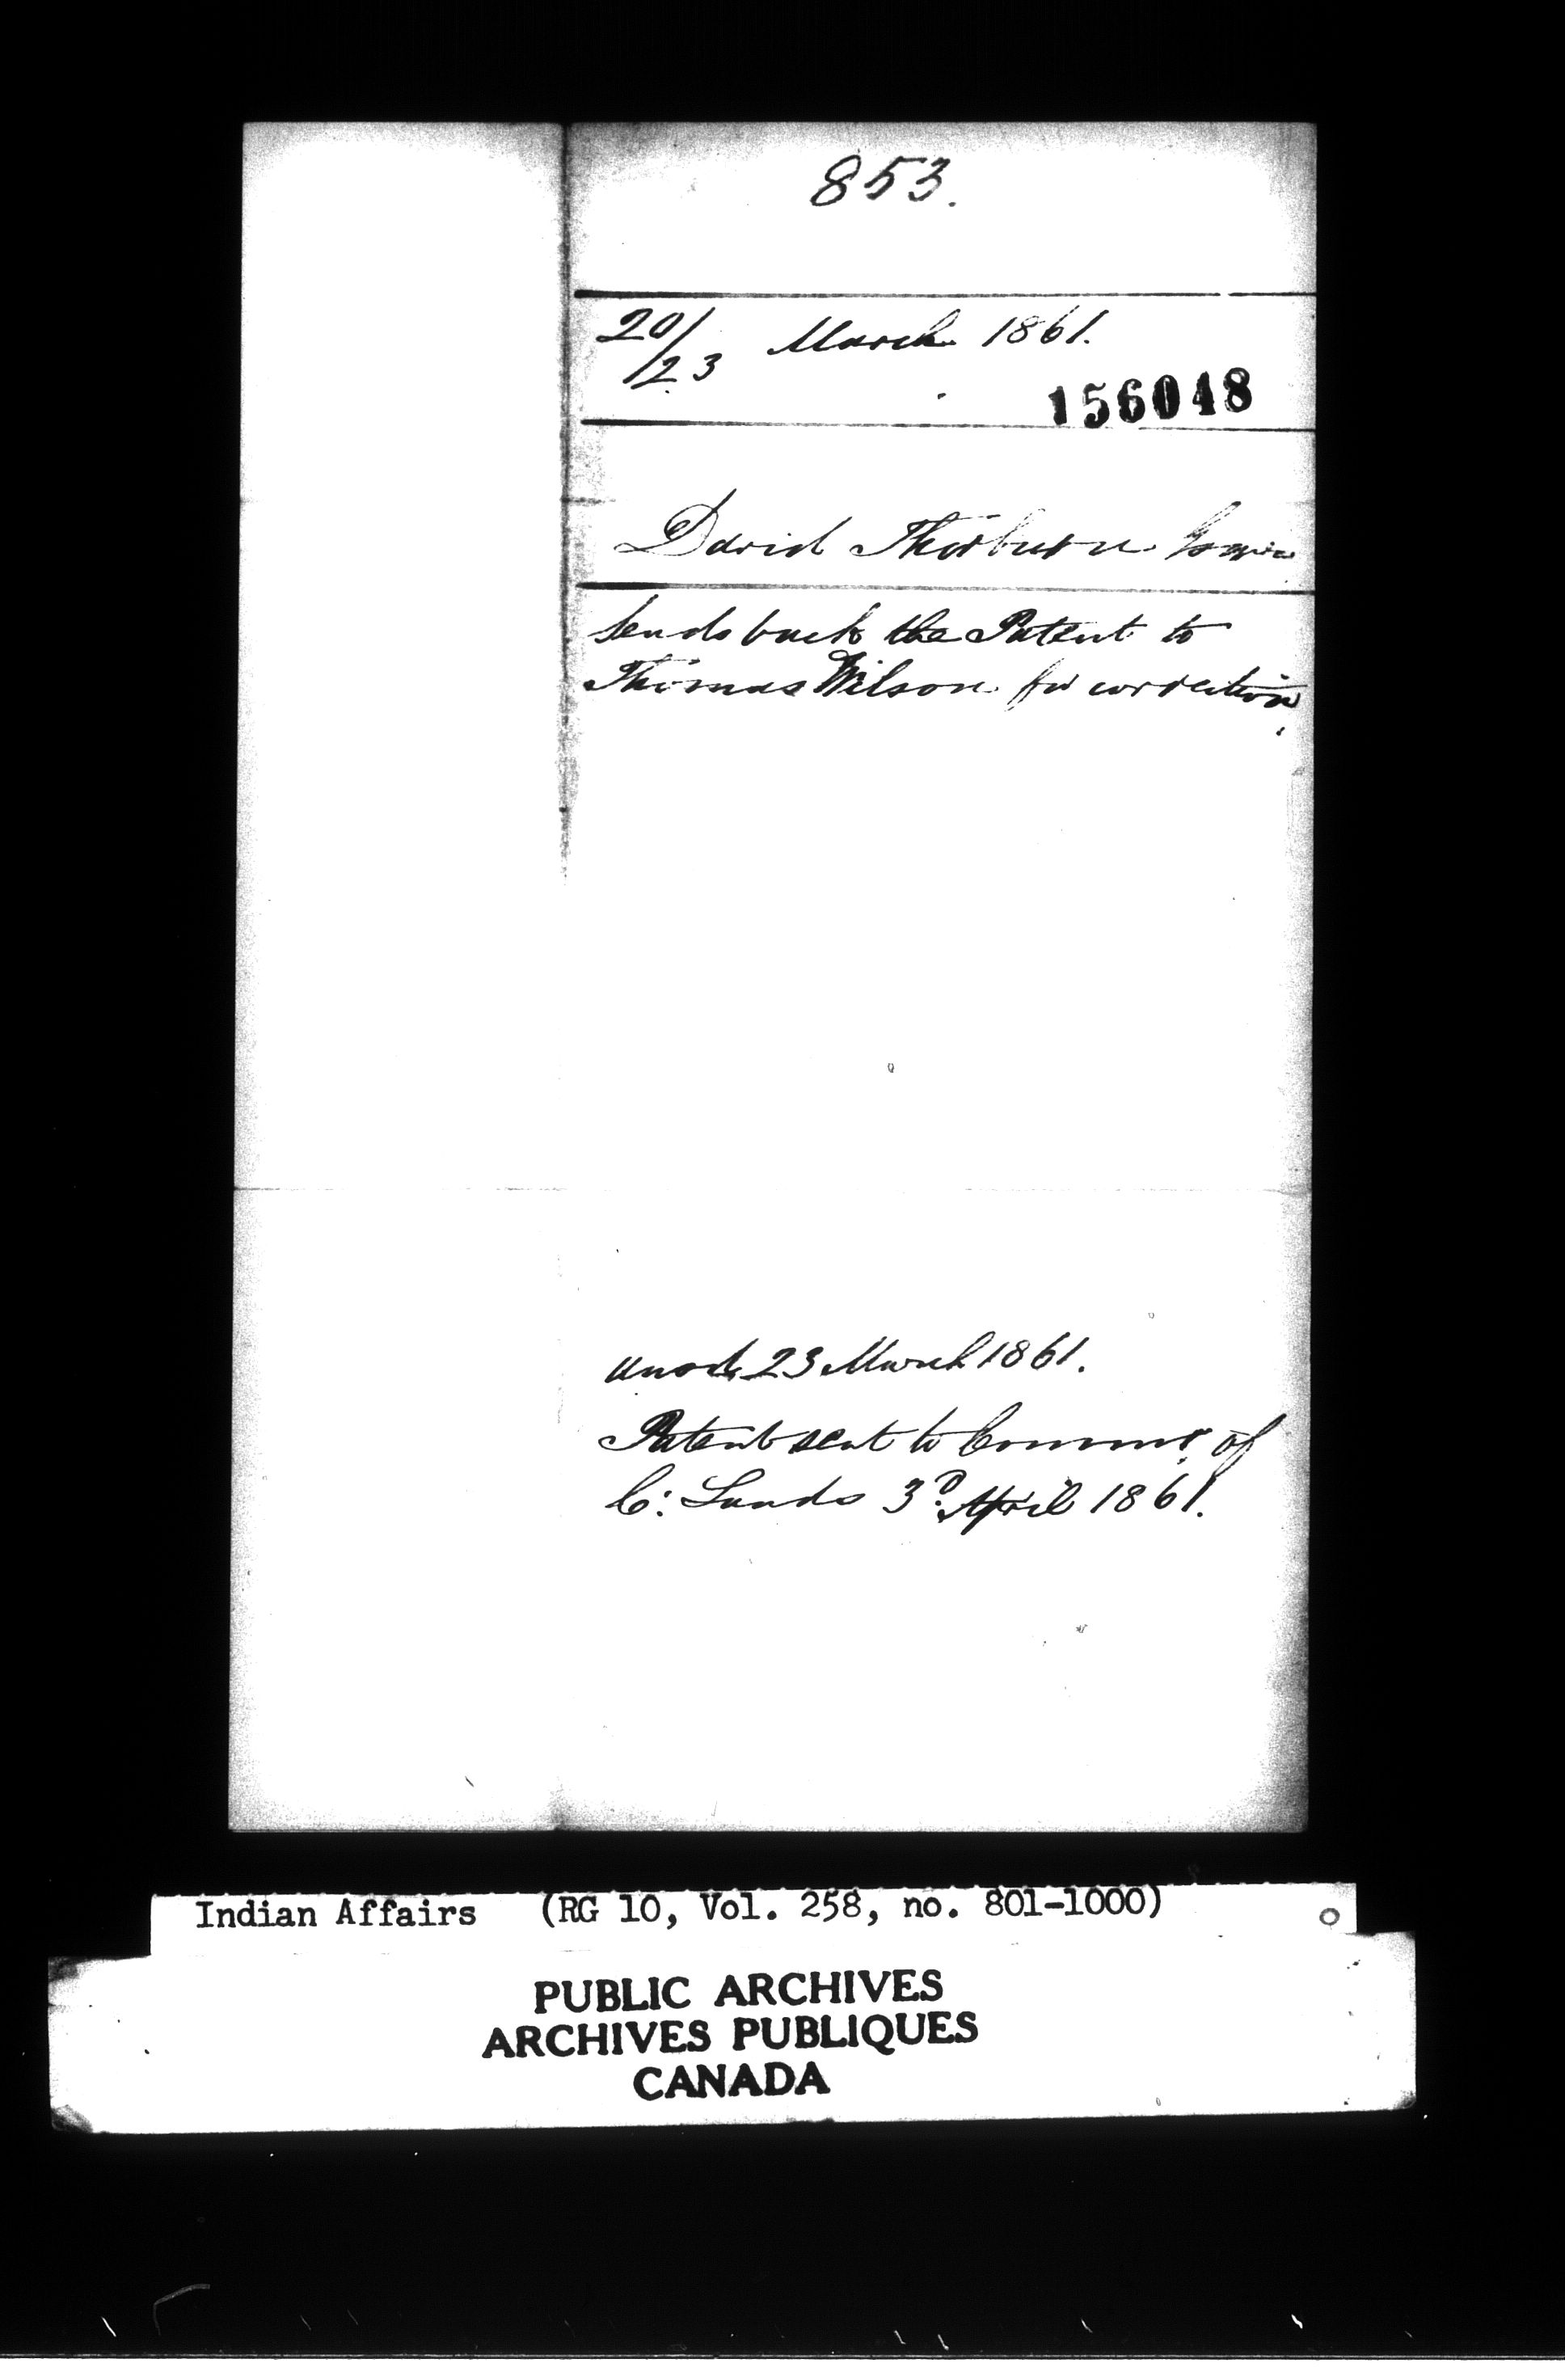 853.
20/23 March 1861.
156048
David Thorburn Esquire
Sends back the Patent to
Thomas Wilson for correction
ansd. 23 March 1861.
Patent sent to Commr. of
C: Lands 3d. April 1861.
Indian Affairs (RG 10, Vol. 258, no. 801-1000)
PUBLIC ARCHIVES
ARCHIVES PUBLIQUES
CANADA